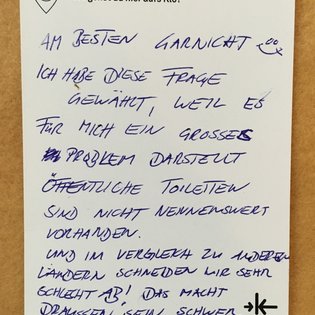 AM BESTEN GARNICHT
ICH HABE DIESE FRAGE
GEWÄHLT, WEIL ES
FÜR MICH EIN GROSSES
PROBLEM DARSTELLT
ÖFFENTLICHE TOILETTEN
SIND NICHT NENNENSWERT
VORHANDEN.
UND IM VERGLEICH ZU ANDEREN
LÄNDERN SCHNEIDEN WIR SEHR
SCHLECHT AB! DAS MACHT
DRAUSSEN SEIN SCHWER